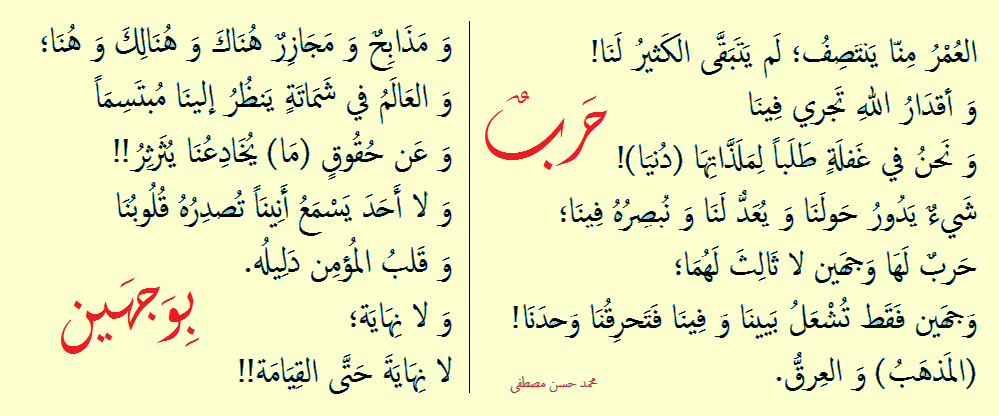 العُمْرُ مِنّا يَنتَصِفُ؛ لَم يَتَبَقَّى الكَثيرُ لَنَا!
وَ أقدَارُ اللهِ تَجري فِينَا
حَربٌ
وَ نَحنُ في غَفلَةٍ طَلَباً لِمَلَذَّاتِهَا (دُنيَا)!
شَيءٌ يَدُورُ حَولَنَا وَ يُعَدُّ لَنَا وَ نُبصِرُهُ فِينَا؛
حَربٌ لَهَا وَجهَين لا ثَالِثَ لَهُمَا؛
وَجهَين فَقَط تُشْعَلُ بَينَنَا وَ فِينَا فَتَحرِقُنَا وَحدَنَا!
(المَذهَبُ) وَ العِرقُّ.
محمد حسن مصطفى
وَ مَذَابِحٌ وَ مَجَازِرٌ هُنَاكَ وَ هُنَالِكَ وَ هُنَا؛
وَ العَالَمُ في شَمَاتَةٍ يَنظُرُ إلينَا مُبتَسِمَاً
وَ عَن حُقُوقٍ (مَا) يُخَادِعُنَا يُثَرثِرُ!!
وَ لا أَحَدَ يَسْمَعُ أَنِينَاً تُصدِرُهُ قُلُوبُنَا
وَ قَلبُ المُؤمِن دَلِيلُه.
بِوَجهَين
وَ لا نِهَايَة؛
لا نِهَايَةَ حَتَّى القِيَامَة!!